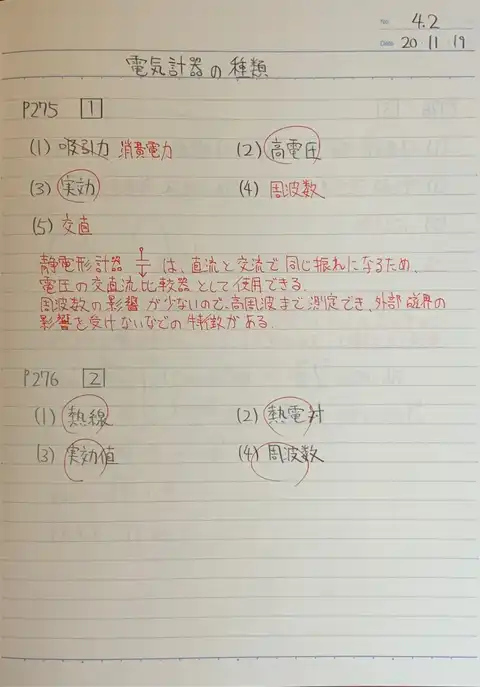 No. 4.2
Date 20 11 19
電気計器の種類
P275 1
(1) 吸引力 消費電力 (2) 高電圧
(3) 実効 (4) 周波数
(5) 交直
静電形計器 は、直流と交流で同じ振れになるため、
電圧の交直流比較器として使用できる.
周波数の影響が少ないので、高周波まで測定でき、外部磁界の
影響を受けないなどの特徴がある.
P276 2
(1) 熱線 (2) 熱電対
(3) 実効値 (4) 周波数